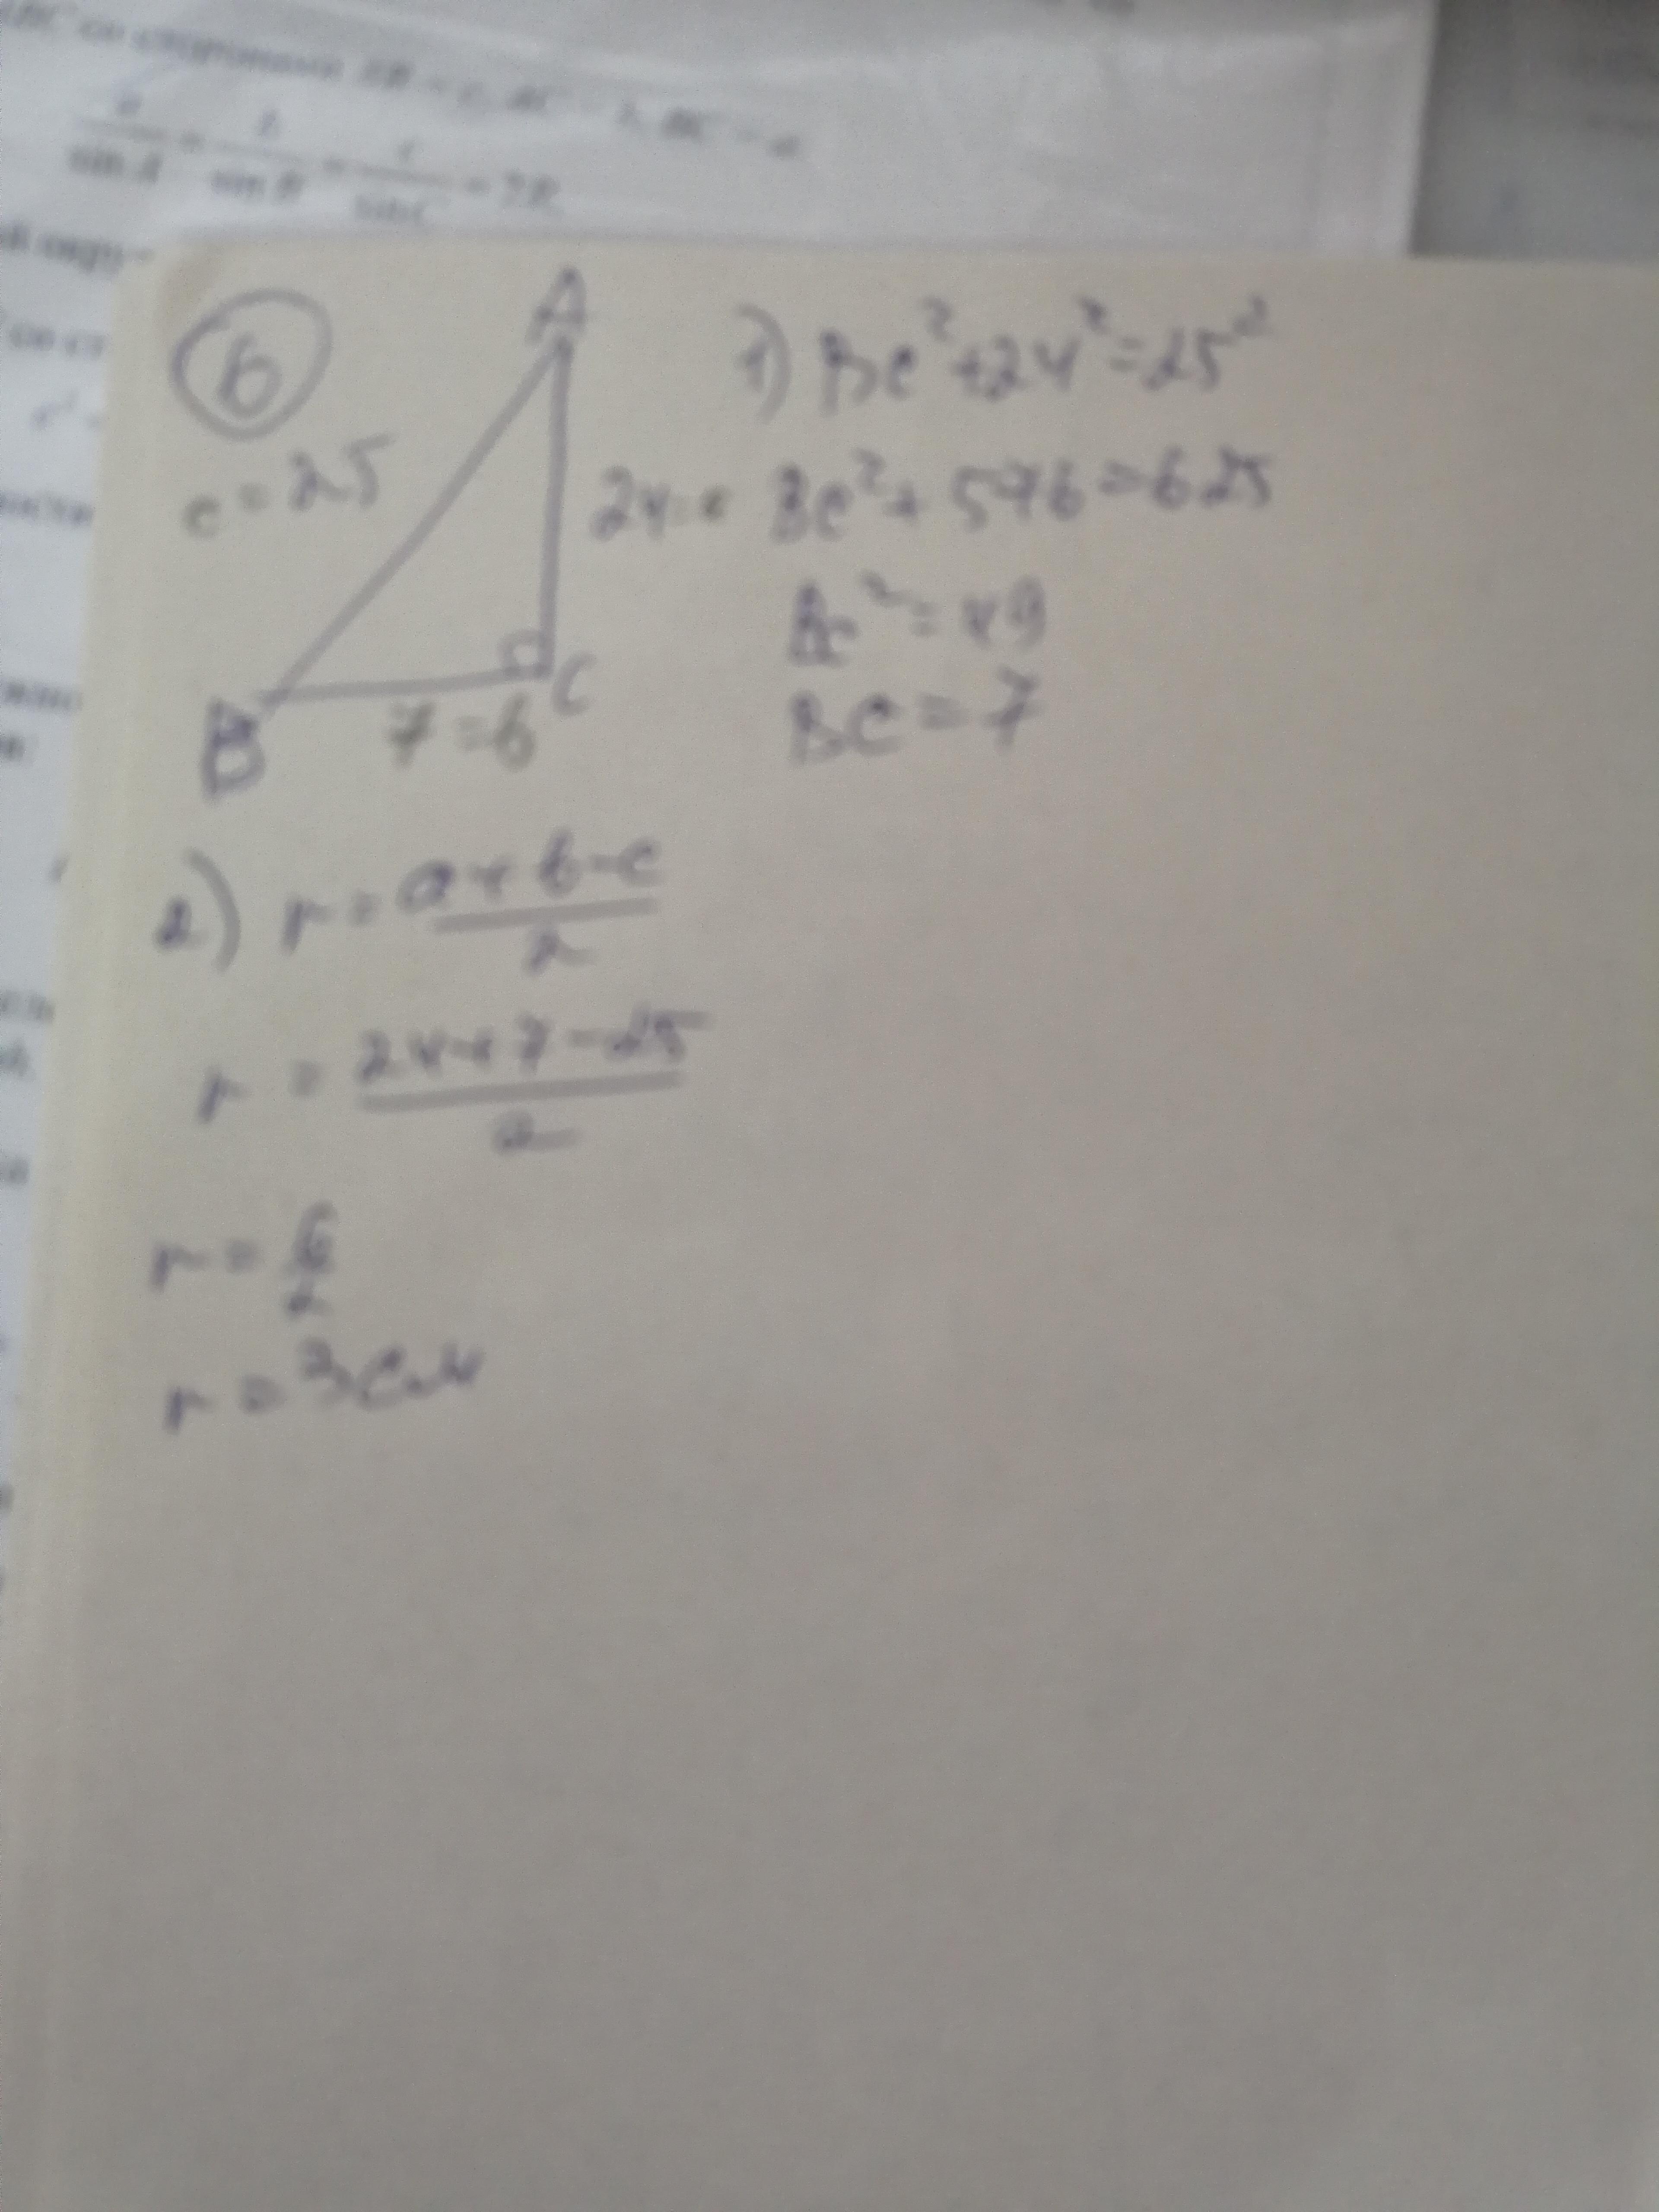 BC со сторонами AB = c, AC = b, BC = a
a/sin A = b/sin B = c/sin C = 2R
6
A
c = 25
B
C
7 = b
1) BC² + 24² = 25²
BC² + 576 = 625
BC² = 49
BC = 7
2) r = (a + b - c)/2
r = (24 + 7 - 25)/2
r = 6/2
r = 3 см